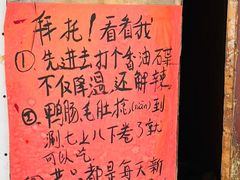 拜托！看看我
① 先进去打个香油碟
不仅降温 还解辣
② 鸭肠毛肚捻(nǎn)到
涮七上八下卷了就
可以吃
都是每天新